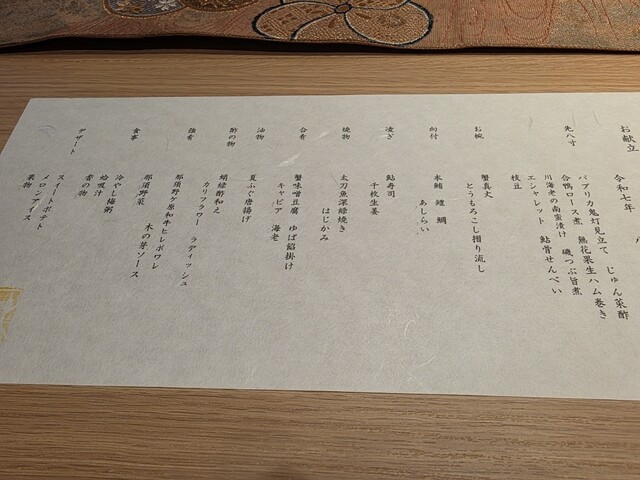 お献立
令和七年
先八寸
パプリカ鬼灯見立て じゅん菜酢
合鴨ロース煮 無花果生ハム巻き
川海老の南蛮漬け 磯つぶ旨煮
エシャレット 鮎骨せんべい
枝豆
お椀
蟹真丈
とうもろこし摺り流し
向付
本鮪 鱧 鯛
あしらい
凌ぎ
鮎寿司
千枚生姜
焼物
太刀魚深緑焼き
はじかみ
合肴
蟹味噌豆腐 ゆば餡掛け
キャビア 海老
油物
夏ふぐ唐揚げ
酢の物
絹緑酢和え
カリフラワー ラディッシュ
強肴
那須野ケ原和牛ヒレポワレ
木の芽ソース
那須野菜
食事
冷やし梅粥
蛤吸汁
香の物
デザート
スイートポテト
メロンアイス
果物